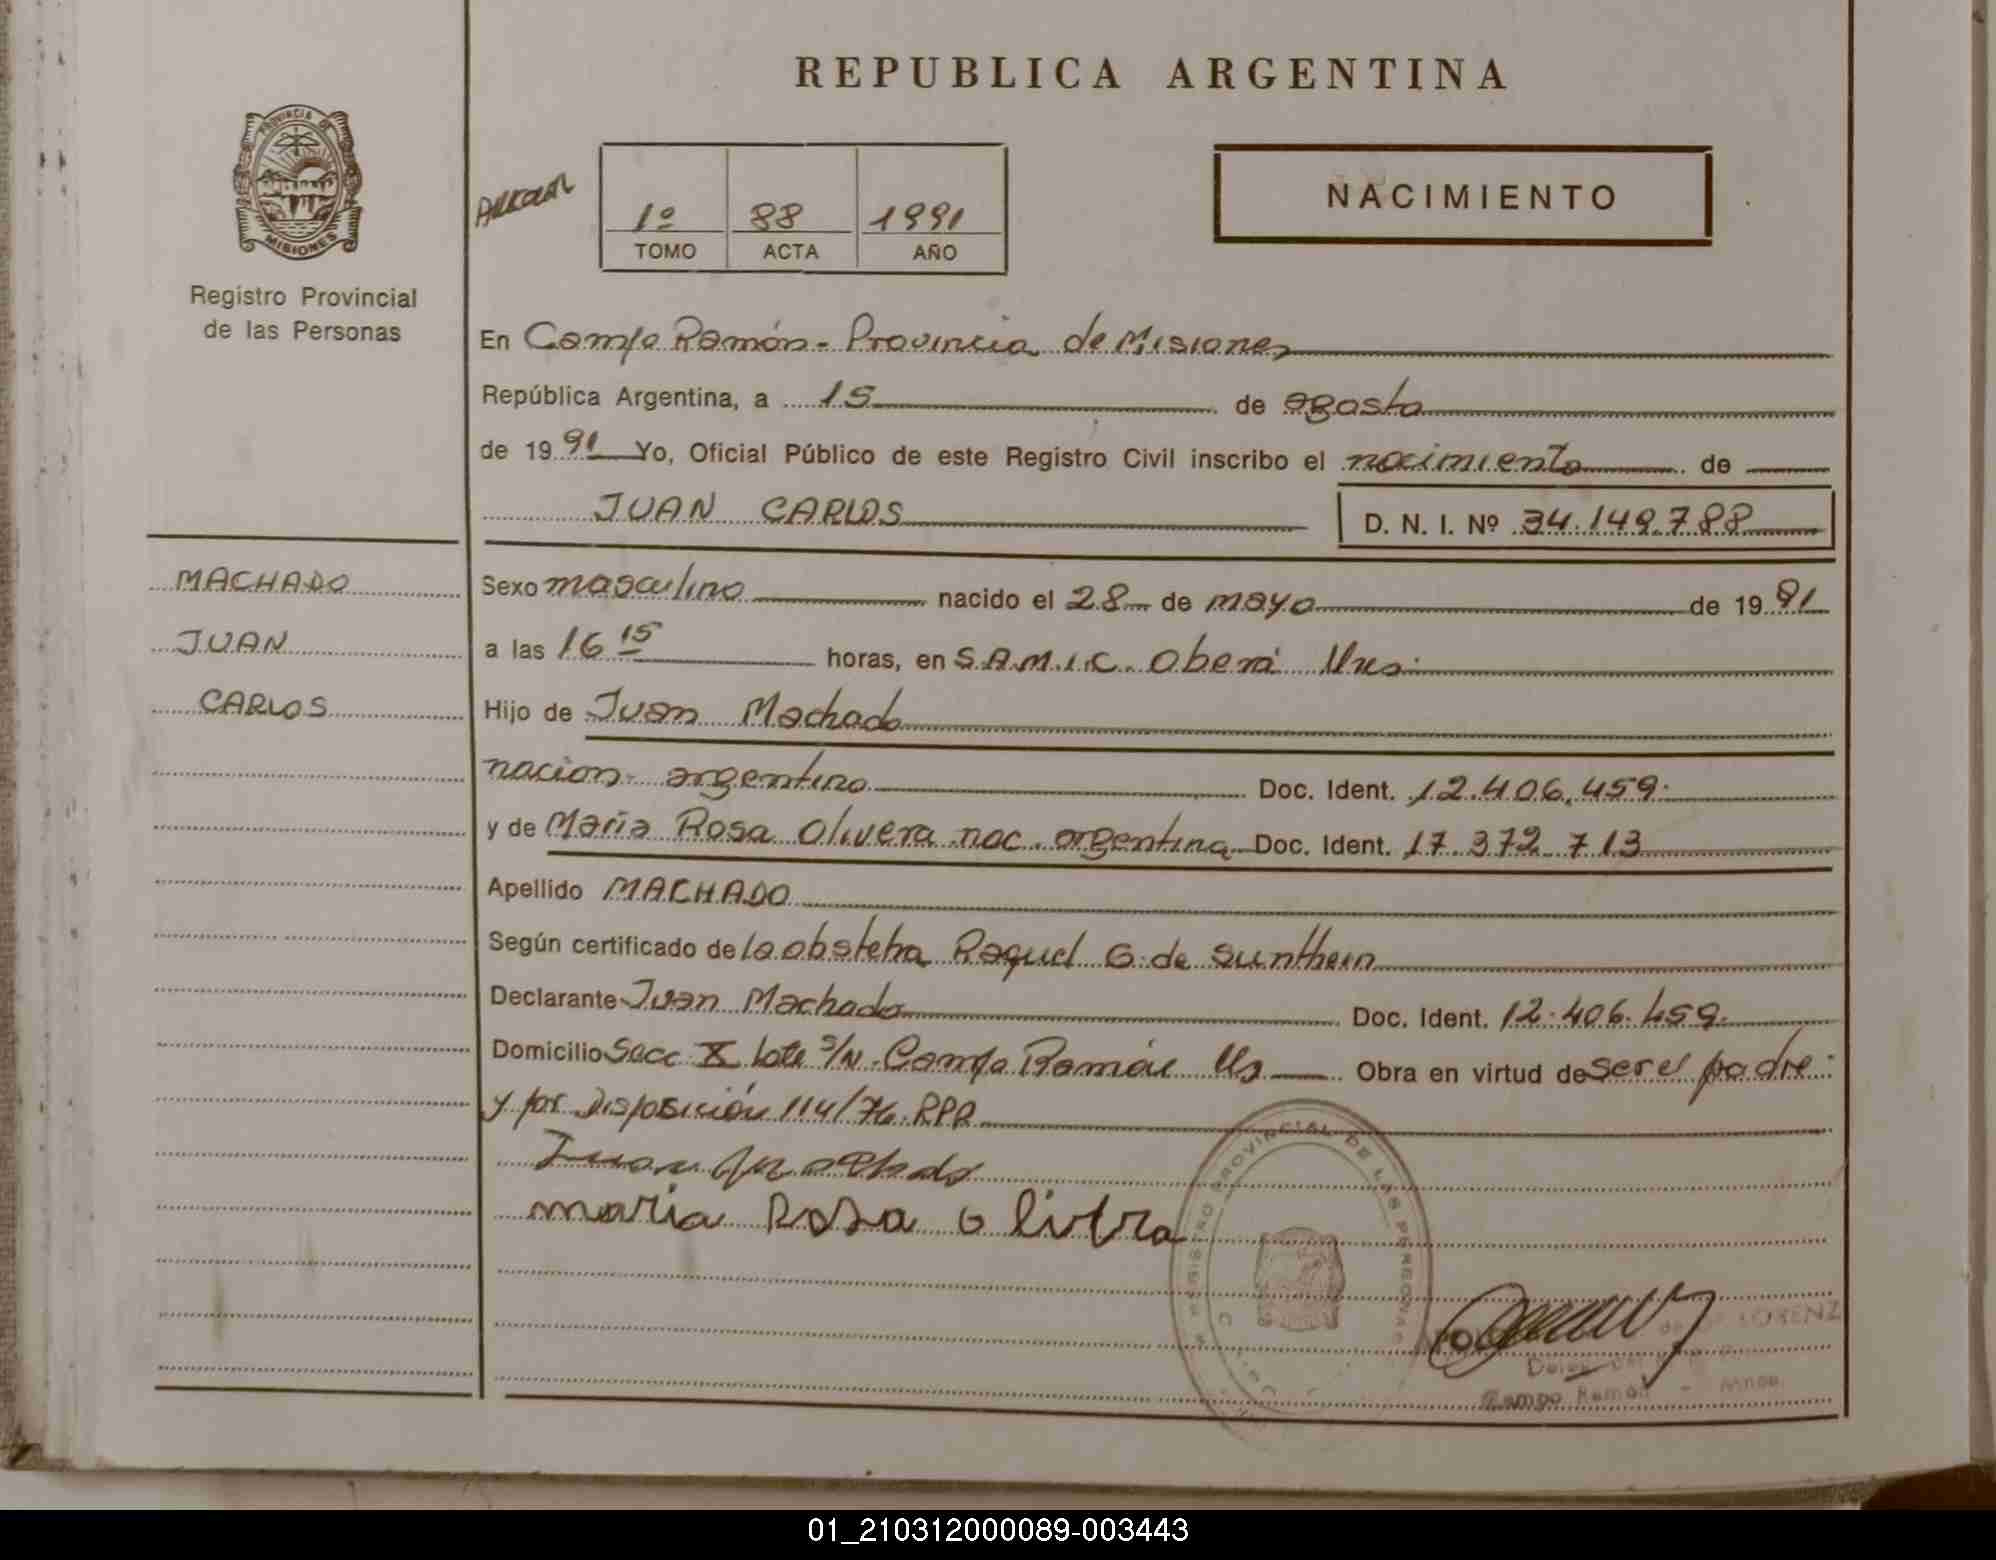 REPUBLICA ARGENTINA
PROVINCIA DE
MISIONES
Registro Provincial
de las Personas
1º 88 1991
TOMO ACTA AÑO
NACIMIENTO
En Campo Ramón - Provincia de Misiones
República Argentina, a 15 de agosto
de 19 91 Yo, Oficial Público de este Registro Civil inscribo el nacimiento de
JUAN CARLOS D. N. I. Nº 34.149.788
MACHADO
JUAN
CARLOS
Sexo masculino nacido el 28 de mayo de 19 91
a las 16 15 horas, en S.A.M.I.C. Oberá Mnes.
Hijo de Juan Machado
nacion- argentino Doc. Ident. 12.406.459.
y de María Rosa Olivera nac. argentina Doc. Ident. 17.372.713
Apellido MACHADO
Según certificado de la obstetra Raquel G. de Sunthein
Declarante Juan Machado Doc. Ident. 12.406.459.
Domicilio Secc X lote S/N. Campo Ramón Ms Obra en virtud de ser el padre
y por Disposición 114/76 RPP
Juan Machado
maria Rosa Olivra
REGISTRO PROVINCIAL DE LAS PERSONAS
LORENZ
Campo Ramón - Mnes.
01_210312000089-003443